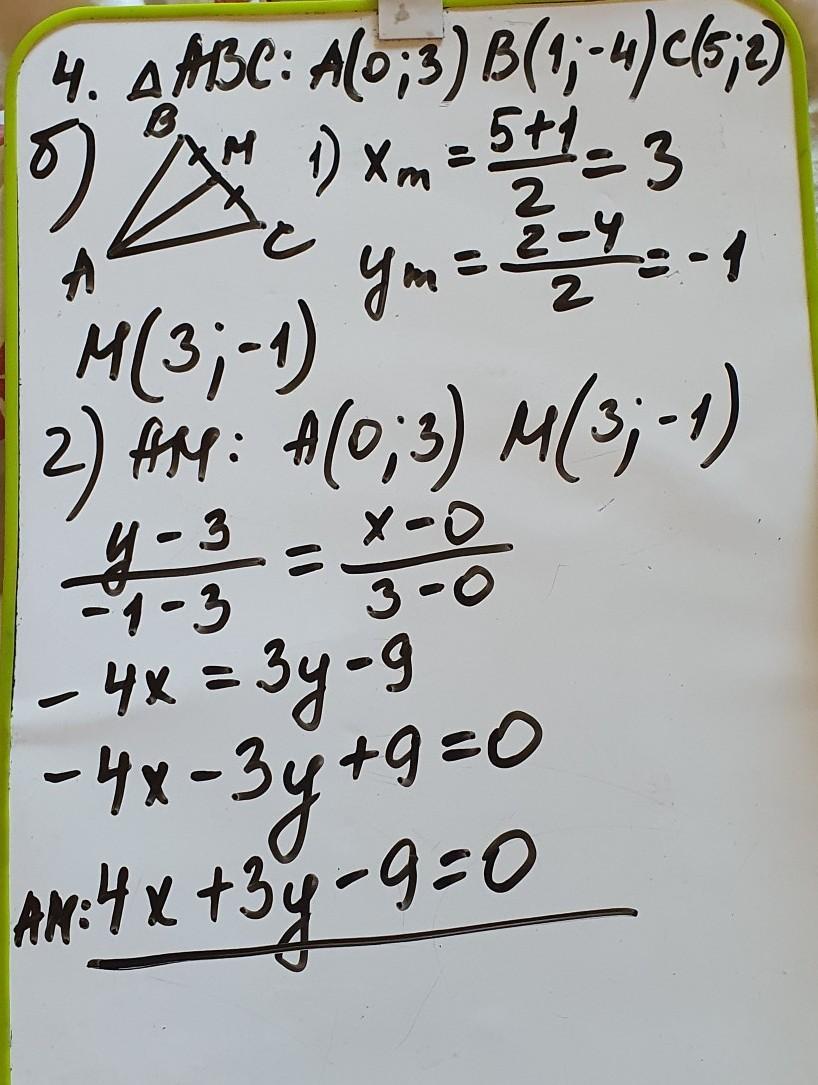 4. △ABC: A(0;3) B(1;-4) C(5;2)
б)
B
M
A
C
1) xm = (5+1)/2 = 3
ym = (2-4)/2 = -1
M(3;-1)
2) AM: A(0;3) M(3;-1)
(y-3)/(-1-3) = (x-0)/(3-0)
-4x = 3y-9
-4x-3y+9=0
AM: 4x+3y-9=0